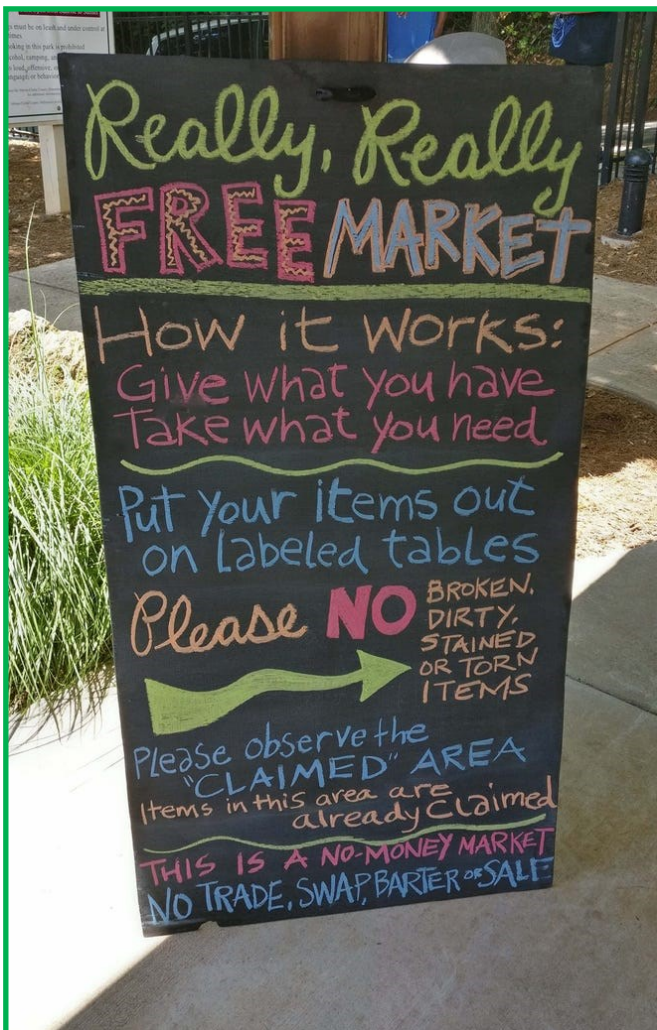 s must be on leash and under control at
Really, Really
FREE MARKET
How it works:
Give what you have
Take what you need
Put your items out
on labeled tables
Please NO BROKEN,
DIRTY,
STAINED
OR TORN
ITEMS
Please observe the
"CLAIMED" AREA
Items in this area are
already Claimed
THIS IS A NO-MONEY MARKET
NO TRADE, SWAP, BARTER OR SALE